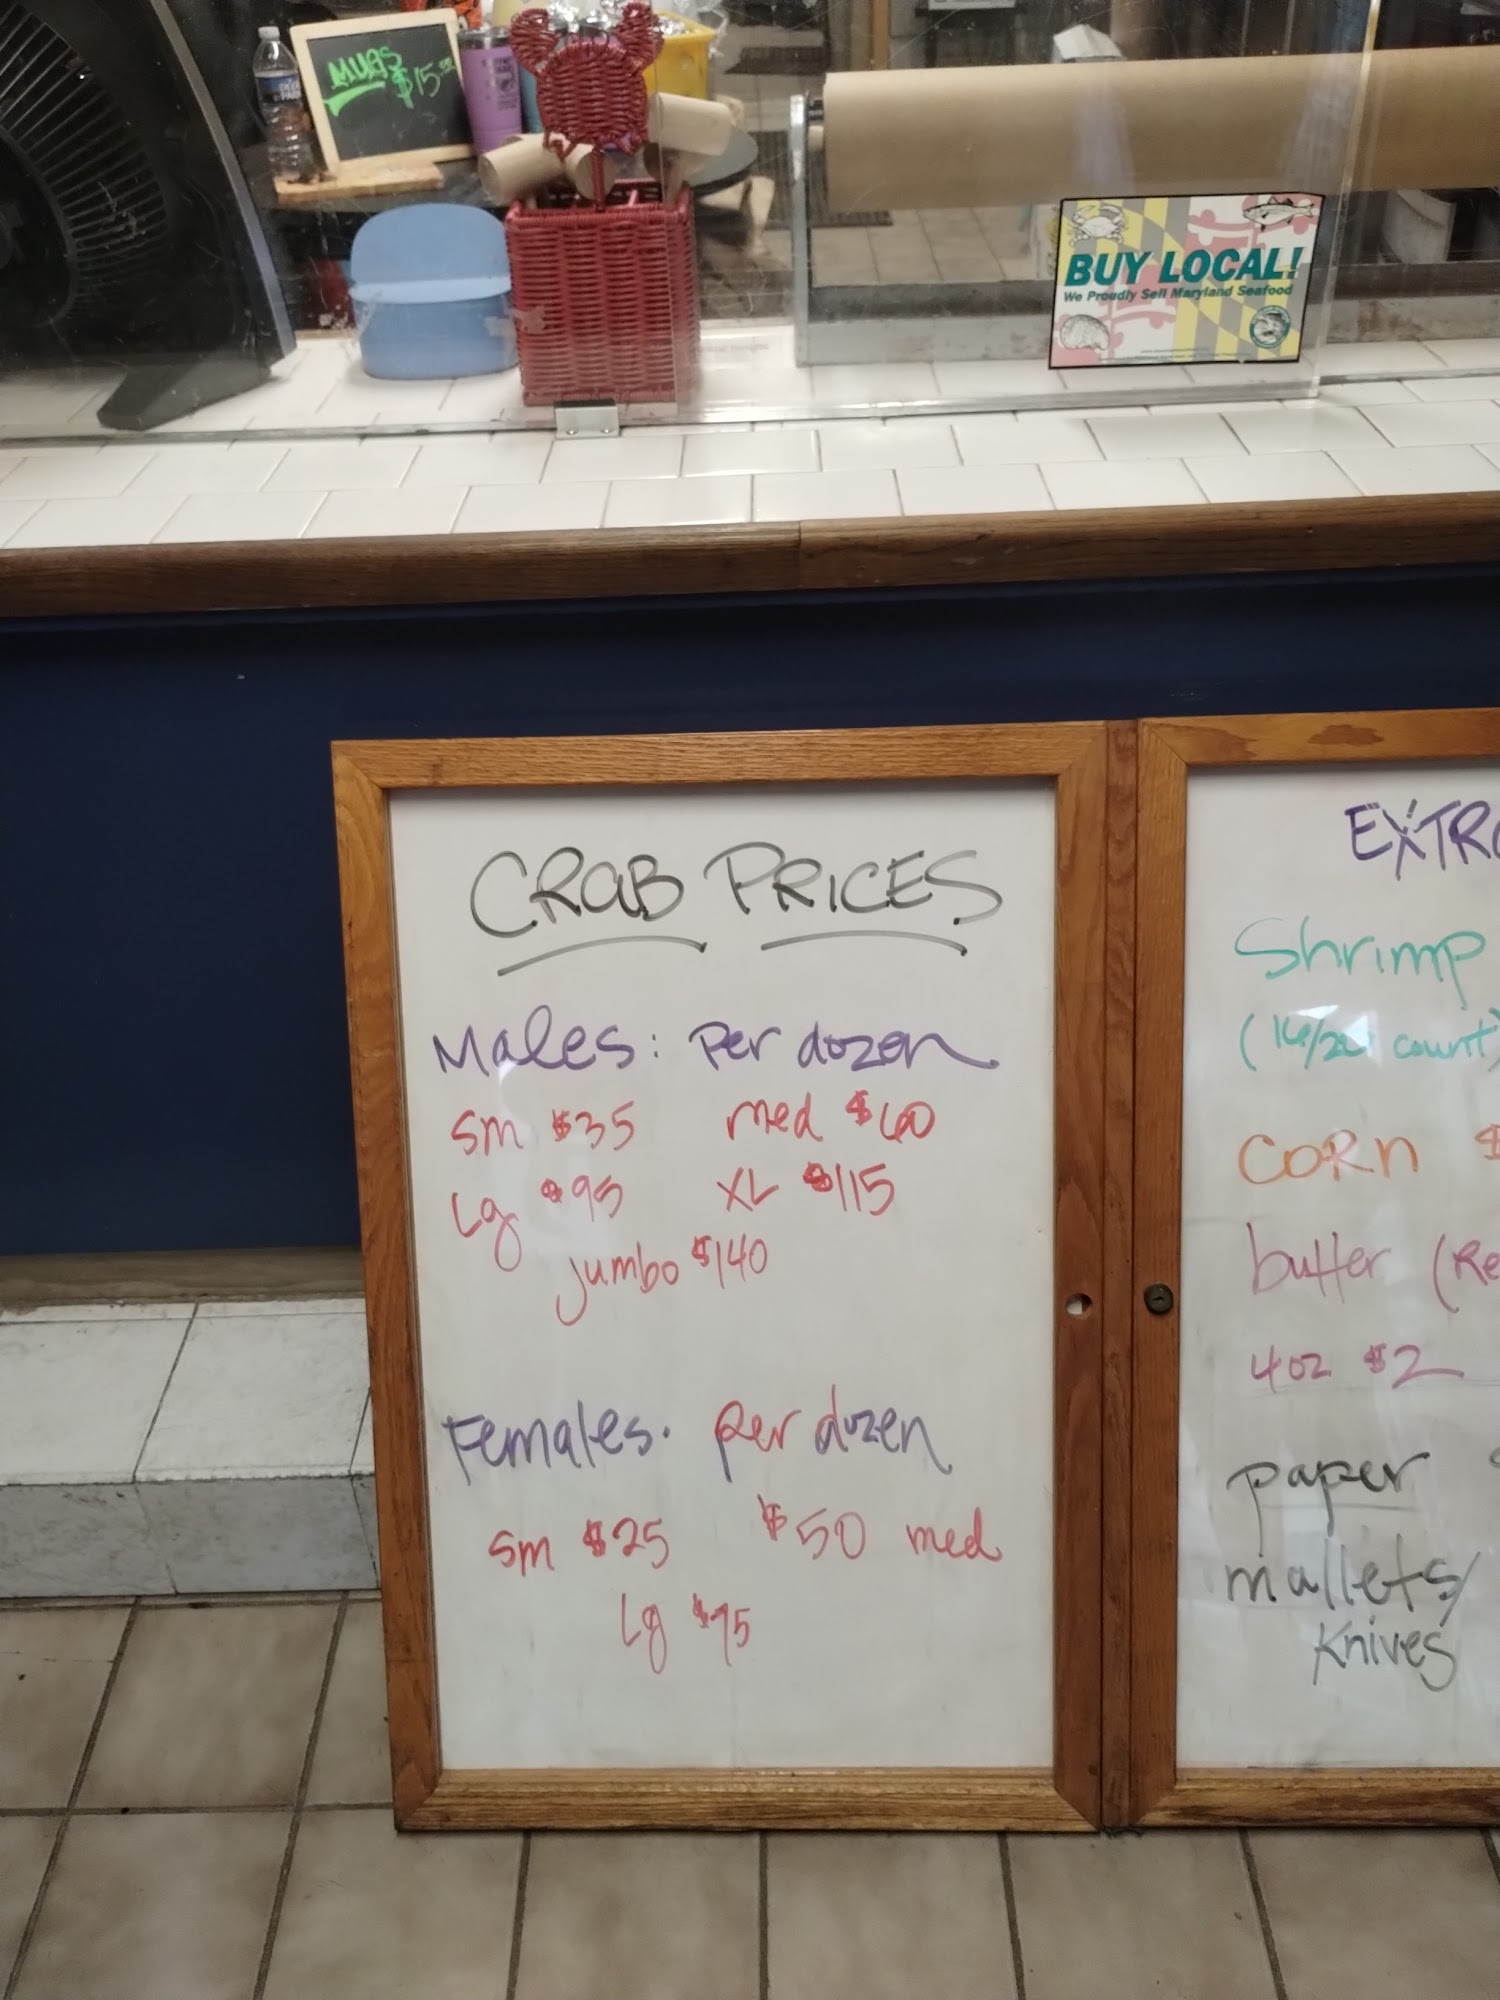 MUGS
$15.00
BUY LOCAL!
We Proudly Sell Maryland Seafood
CRAB PRICES
Males: per dozen
sm $35 med $60
Lg $95 XL $115
jumbo $140
Females. per dozen
sm $25 $50 med
Lg $75
EXTR
Shrimp
count)
CORN $
butter (Re
4oz $2
paper
mallets/
Knives